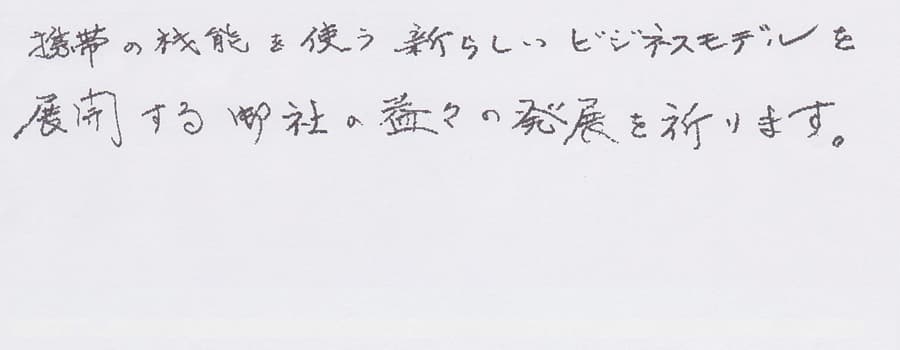 携帯の機能を使う新らしいビジネスモデルを
展開する御社の益々の発展を祈ります。